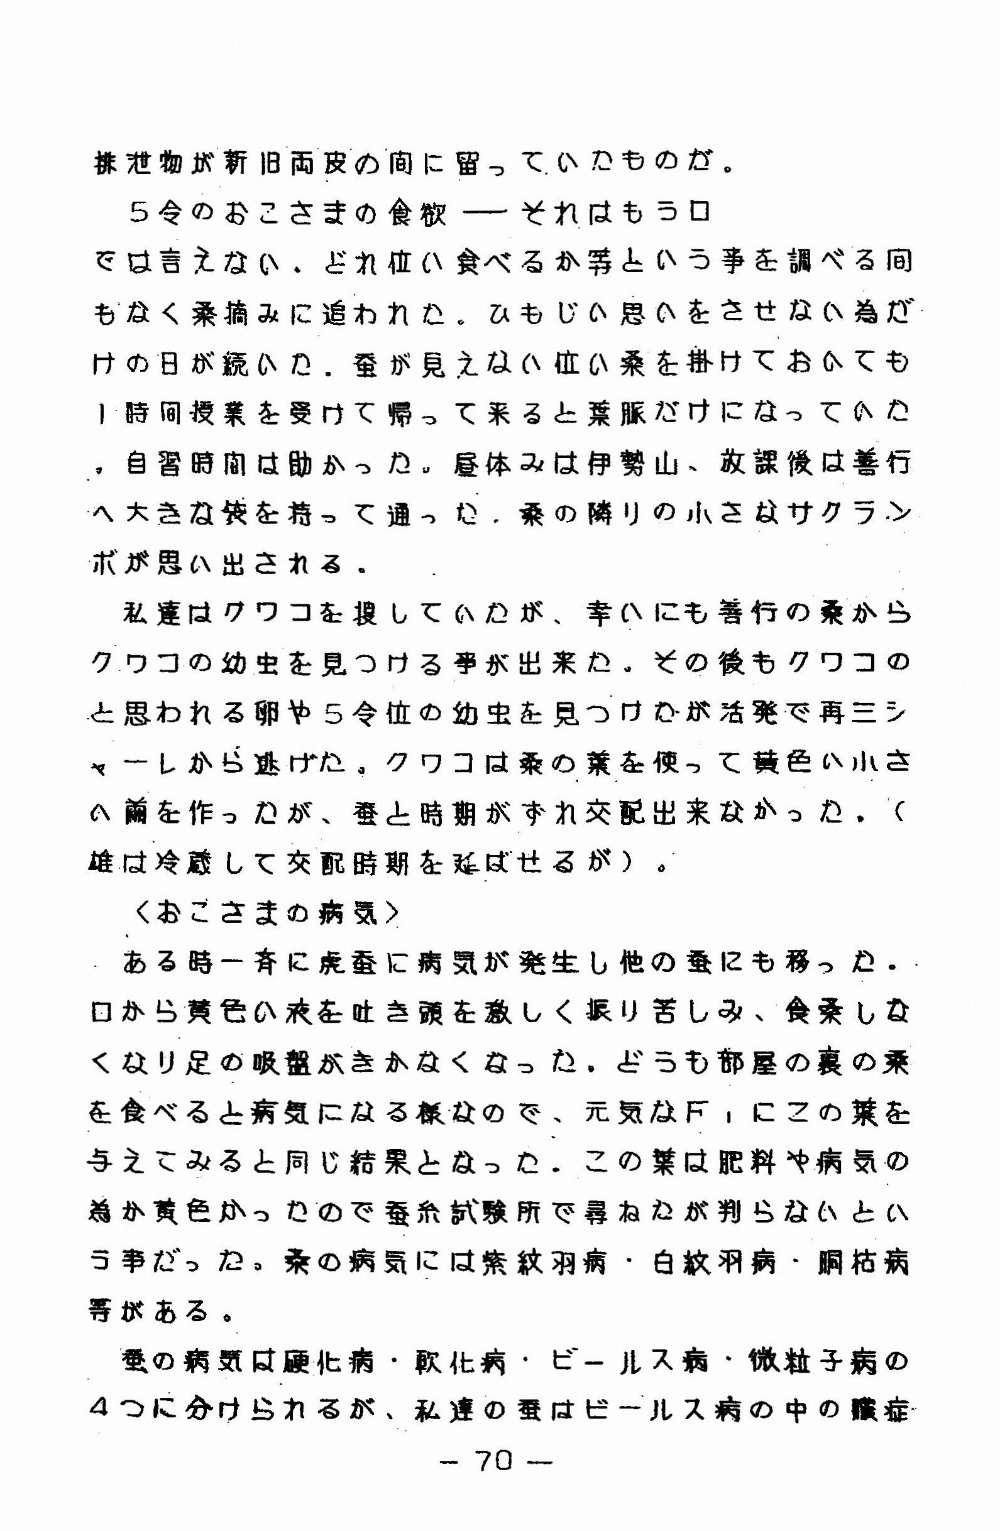 排泄物が新旧両皮の間に留っていたものだ。
５令のおこさまの食欲――それはもう口
では言えない、どれ位い食べるか等という事を調べる間
もなく桑摘みに追われた。ひもじい思いをさせない為だ
けの日が続いた。蚕が見えない位い桑を掛けておいても
１時間授業を受けて帰って来ると葉脈だけになっていた
。自習時間は助かった。昼休みは伊勢山、放課後は善行
へ大きな袋を持って通った。桑の隣りの小さなサクラン
ボが思い出される。
私達はクワコを捜していたが、幸いにも善行の桑から
クワコの幼虫を見つける事が出来た。その後もクワコの
と思われる卵や５令位の幼虫を見つけたが活発で再三シ
ャーレから逃げた。クワコは桑の葉を使って黄色い小さ
い繭を作ったが、蚕と時期がずれ交配出来なかった。（
雄は冷蔵して交配時期を延ばせるが）。
〈おこさまの病気〉
ある時一斉に虎蚕に病気が発生し他の蚕にも移った。
口から黄色い液を吐き頭を激しく振り苦しみ、食桑しな
くなり足の吸盤がきかなくなった。どうも部屋の裏の桑
を食べると病気になる様なので、元気なＦ₁にこの葉を
与えてみると同じ結果となった。この葉は肥料や病気の
為か黄色かったので蚕糸試験所で尋ねたが判らないとい
う事だった。桑の病気には紫紋羽病・白紋羽病・胴枯病
等がある。
蚕の病気は硬化病・軟化病・ビールス病・微粒子病の
４つに分けられるが、私達の蚕はビールス病の中の膿症
－70－